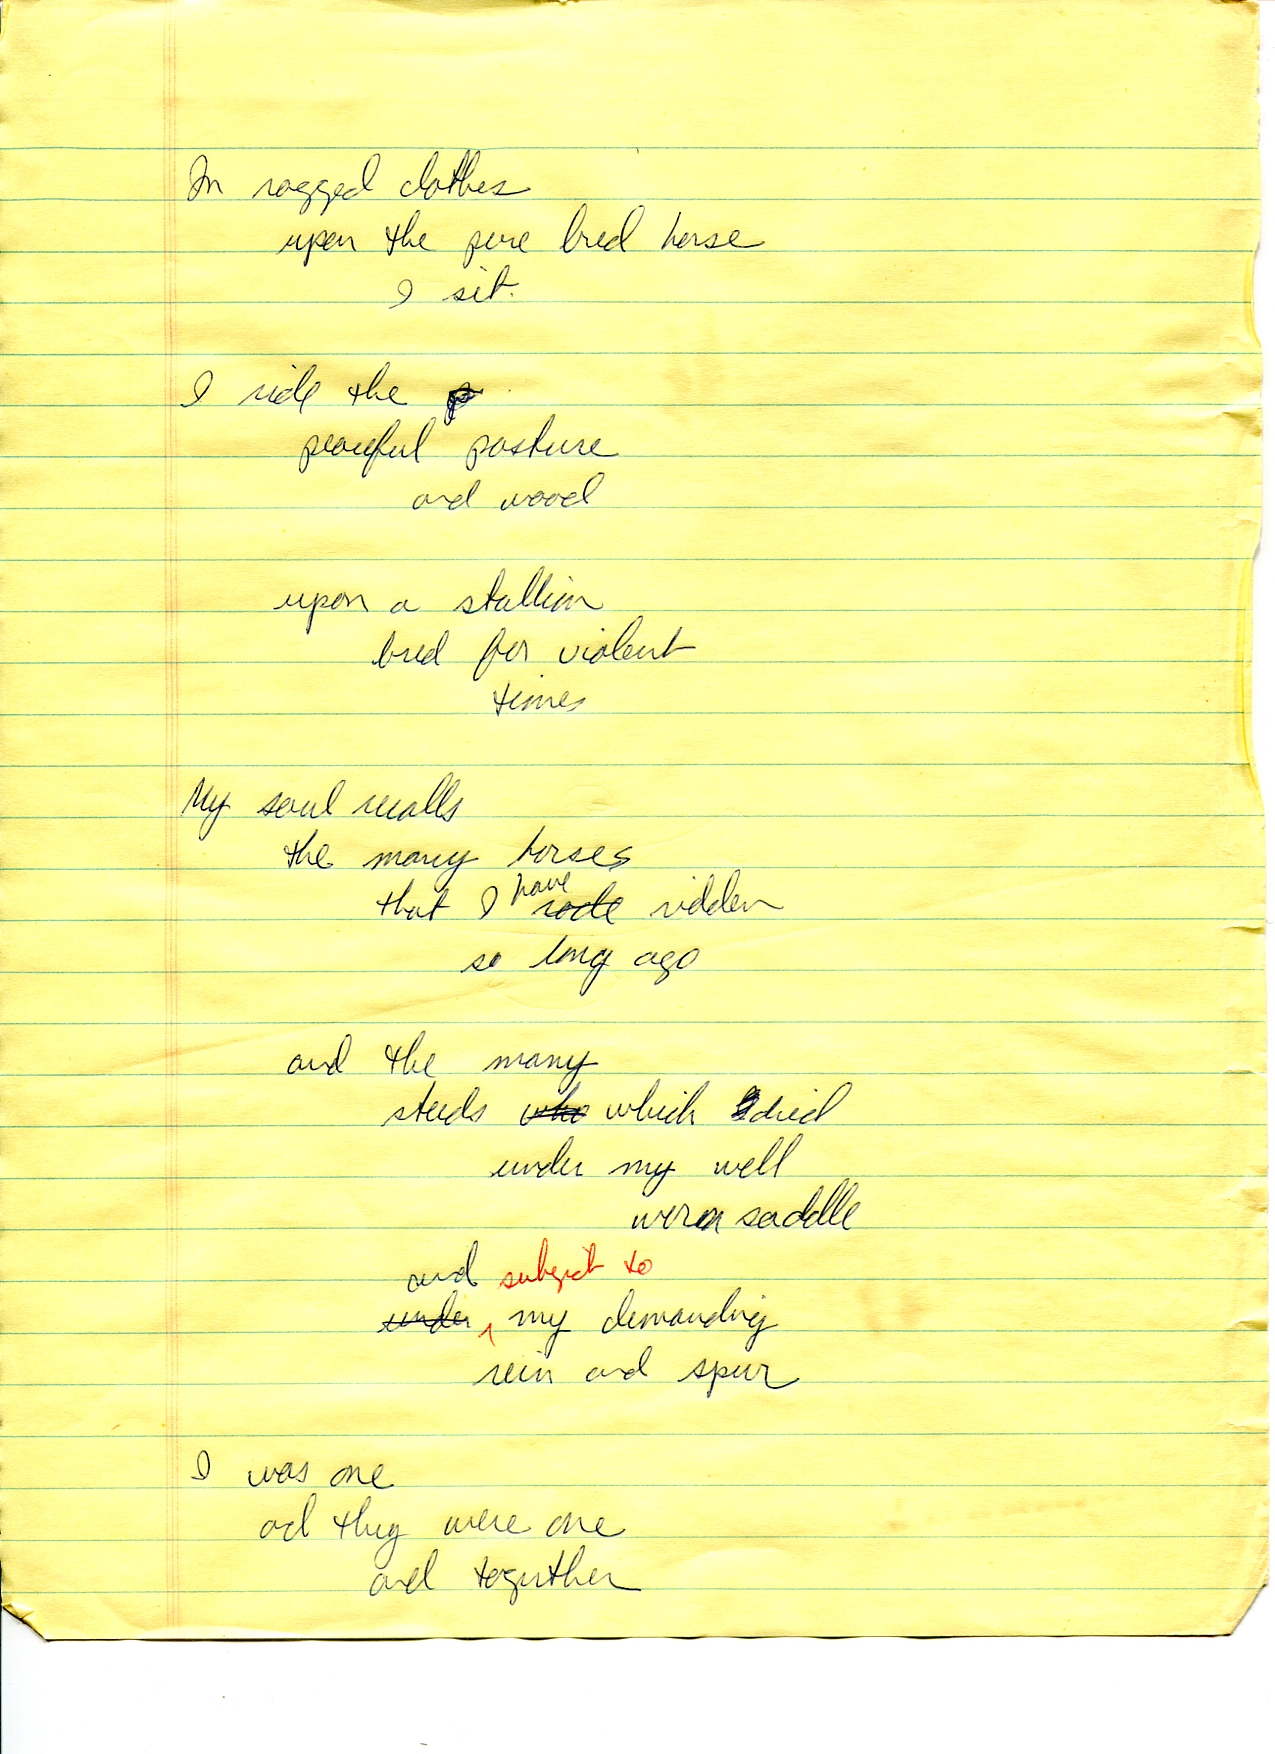 In ragged clothes
upon the pure bred horse
I sit.
I ride the
peaceful pasture
and wood
upon a stallion
bred for violent
times
My soul recalls
the many horses
that I have rode ridden
so long ago
and the many
steeds who which died
under my well
worn saddle
and subject to
under my demanding
rein and spur
I was one
ad they were one
and together